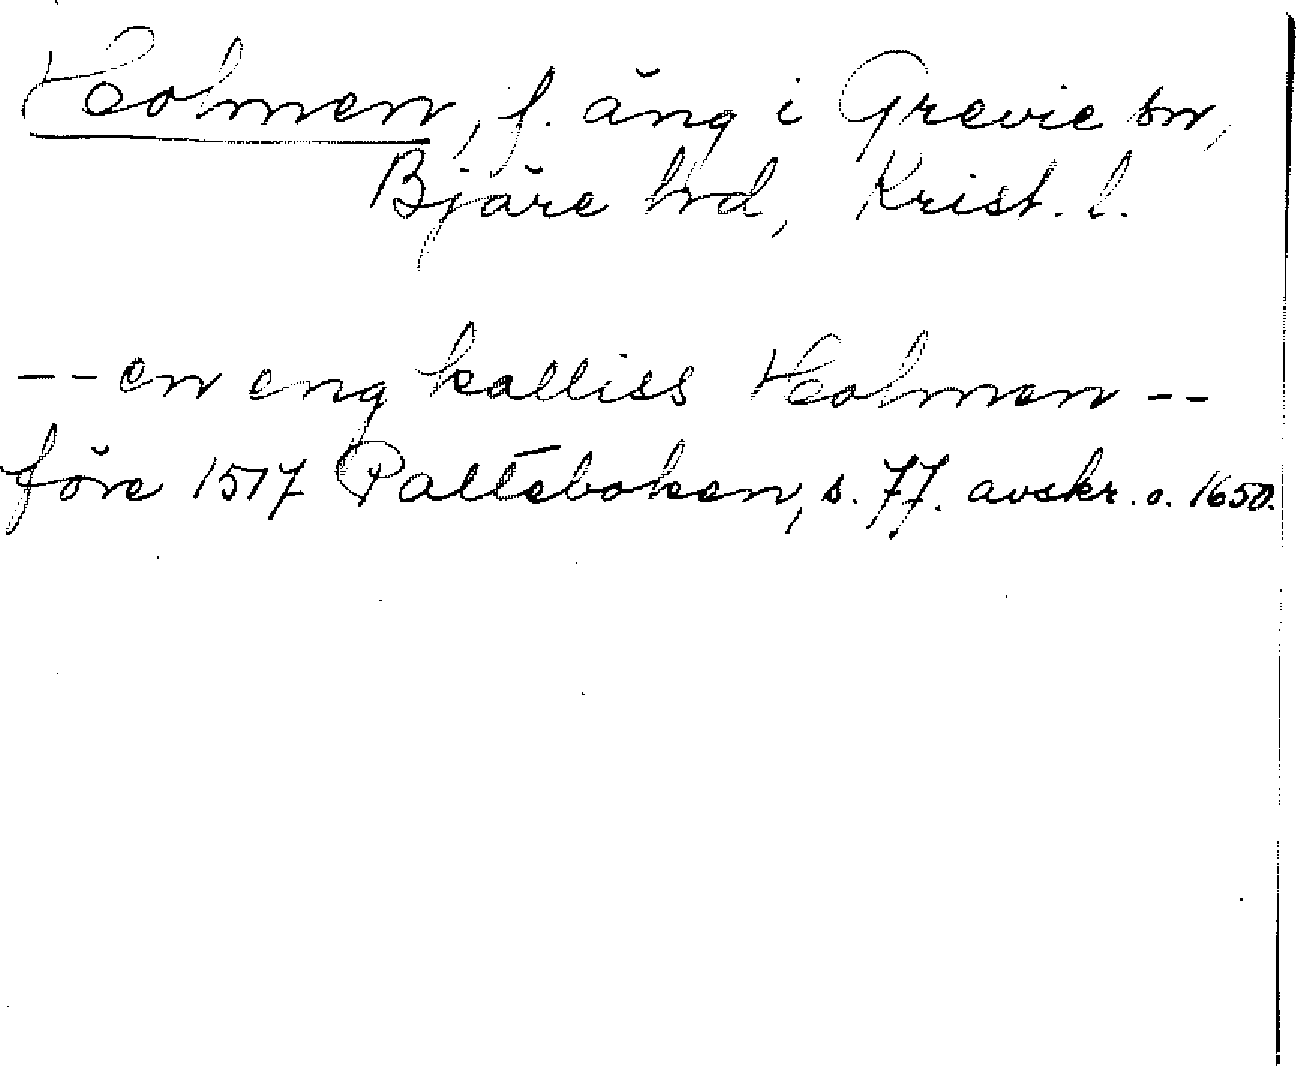 Holmen, f. äng i Grevie sn,
Bjäre hd, Krist. l.
-- en eng kalliss Holmen --
före 1517 Palteboken, s. 77. avskr. o. 1650.